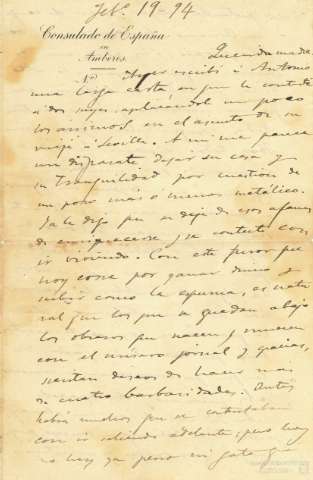 Feb.º 19-94
Consulado de España
en
Amberes
Querida madre
Nº Ayer escribí á Antonio
una larga carta, en que le contesté
á dos suyas, aplacándole un poco
los ánimos en el asunto de su
viaje á Sevilla. A mí me parece
un disparate dejar su casa y
su tranquilidad por cuestion de
un poco más ó menos metálico.
Ya le digo que se deje de esos afanes
de enriquecerse y se contente con
ir viviendo. Con este furor que
hoy corre por ganar dinero y
subir como la espuma, es natu
ral que los que se quedan abajo
los obreros que nacen y mueren
con el mismo jornal y gracias,
sientan deseos de hacer más
de cuatro barbaridades. Antes
había muchos que se contentaban
con ir saliendo adelante, pero hoy
no hay ya perro ni gato que